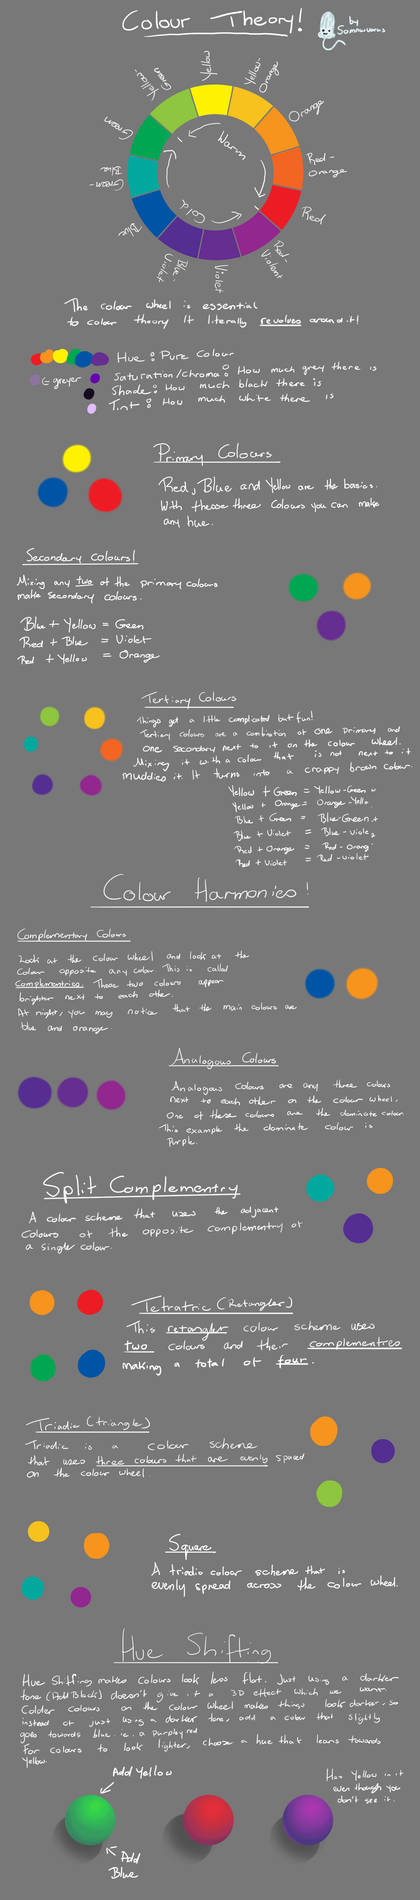 Colour Theory!
by
Yellow
Yellow-
Orange
Orange
Red-
Orange
Red
Red-
Violet
Blue-
Violet
Blue
Green-
Blue
Green
Yellow-
Green
Warm
Cold
The colour wheel is essential
to colour theory It literally revolves around it!
Hue : Pure Colour
Saturation/Chroma : How much grey there is
greyer
Shade : How much black there is
Tint : How much white there is
Primary Colours
Red, Blue and Yellow are the basics.
With these three Colours you can make
any hue.
Secondary Colours!
Mixing any two of the primary colours
make Secondary colours.
Blue + Yellow = Green
Red + Blue = Violet
Red + Yellow = Orange
Tertiary Colours
Things get a little complicated but fun!
Tertiary colours are a combination of one primary and
one secondary next to it on the colour wheel.
Mixing it with a colour that is not next to it
muddies it It turns into a crappy brown colour.
Yellow + Green = Yellow-Green
Yellow + Orange = Orange-Yello
Blue + Green = Blue-Green
Blue + Violet = Blue-Viole
Red + Orange = Red-Orang
Red + Violet = Red-violet
Colour Harmonies!
Complementary Colours
Look at the Colour wheel and look at the
Colour opposite any colour. This is called
Complementries. These two colours appear
brighter next to each other.
At night, you may notice that the main colours are
blue and orange.
Analogous Colours
Analogous Colours are any three colors
next to each other on the colour wheel.
One of these colours are the dominate colour
This example the dominate colour is
Purple.
Split Complementry
A colour scheme that uses the adjacent
Colours of the opposite complementry of
a single colour.
Tetratric (Retangler)
This retangler colour scheme uses
two colours and their complementres
making a total of four.
Triadic (triangle)
Triadic is a colour scheme
that uses three colours that are evenly spaced
on the colour wheel.
Square
A triadic colour scheme that is
evenly spread across the colour wheel.
Hue Shifting
Hue Shifting makes Colours look less flat. Just using a darker
tone (Add Black) doesn't give it a 3D effect which we want.
Colder colours on the Colour wheel makes things look darker, so
instead of just using a darker tone, add a colour that slightly
goes towards blue. ie. a purpley red
For colours to look lighter, choose a hue that leans towards
yellow.
Add Yellow
Has Yellow in it
even though you
don't see it.
Add
Blue